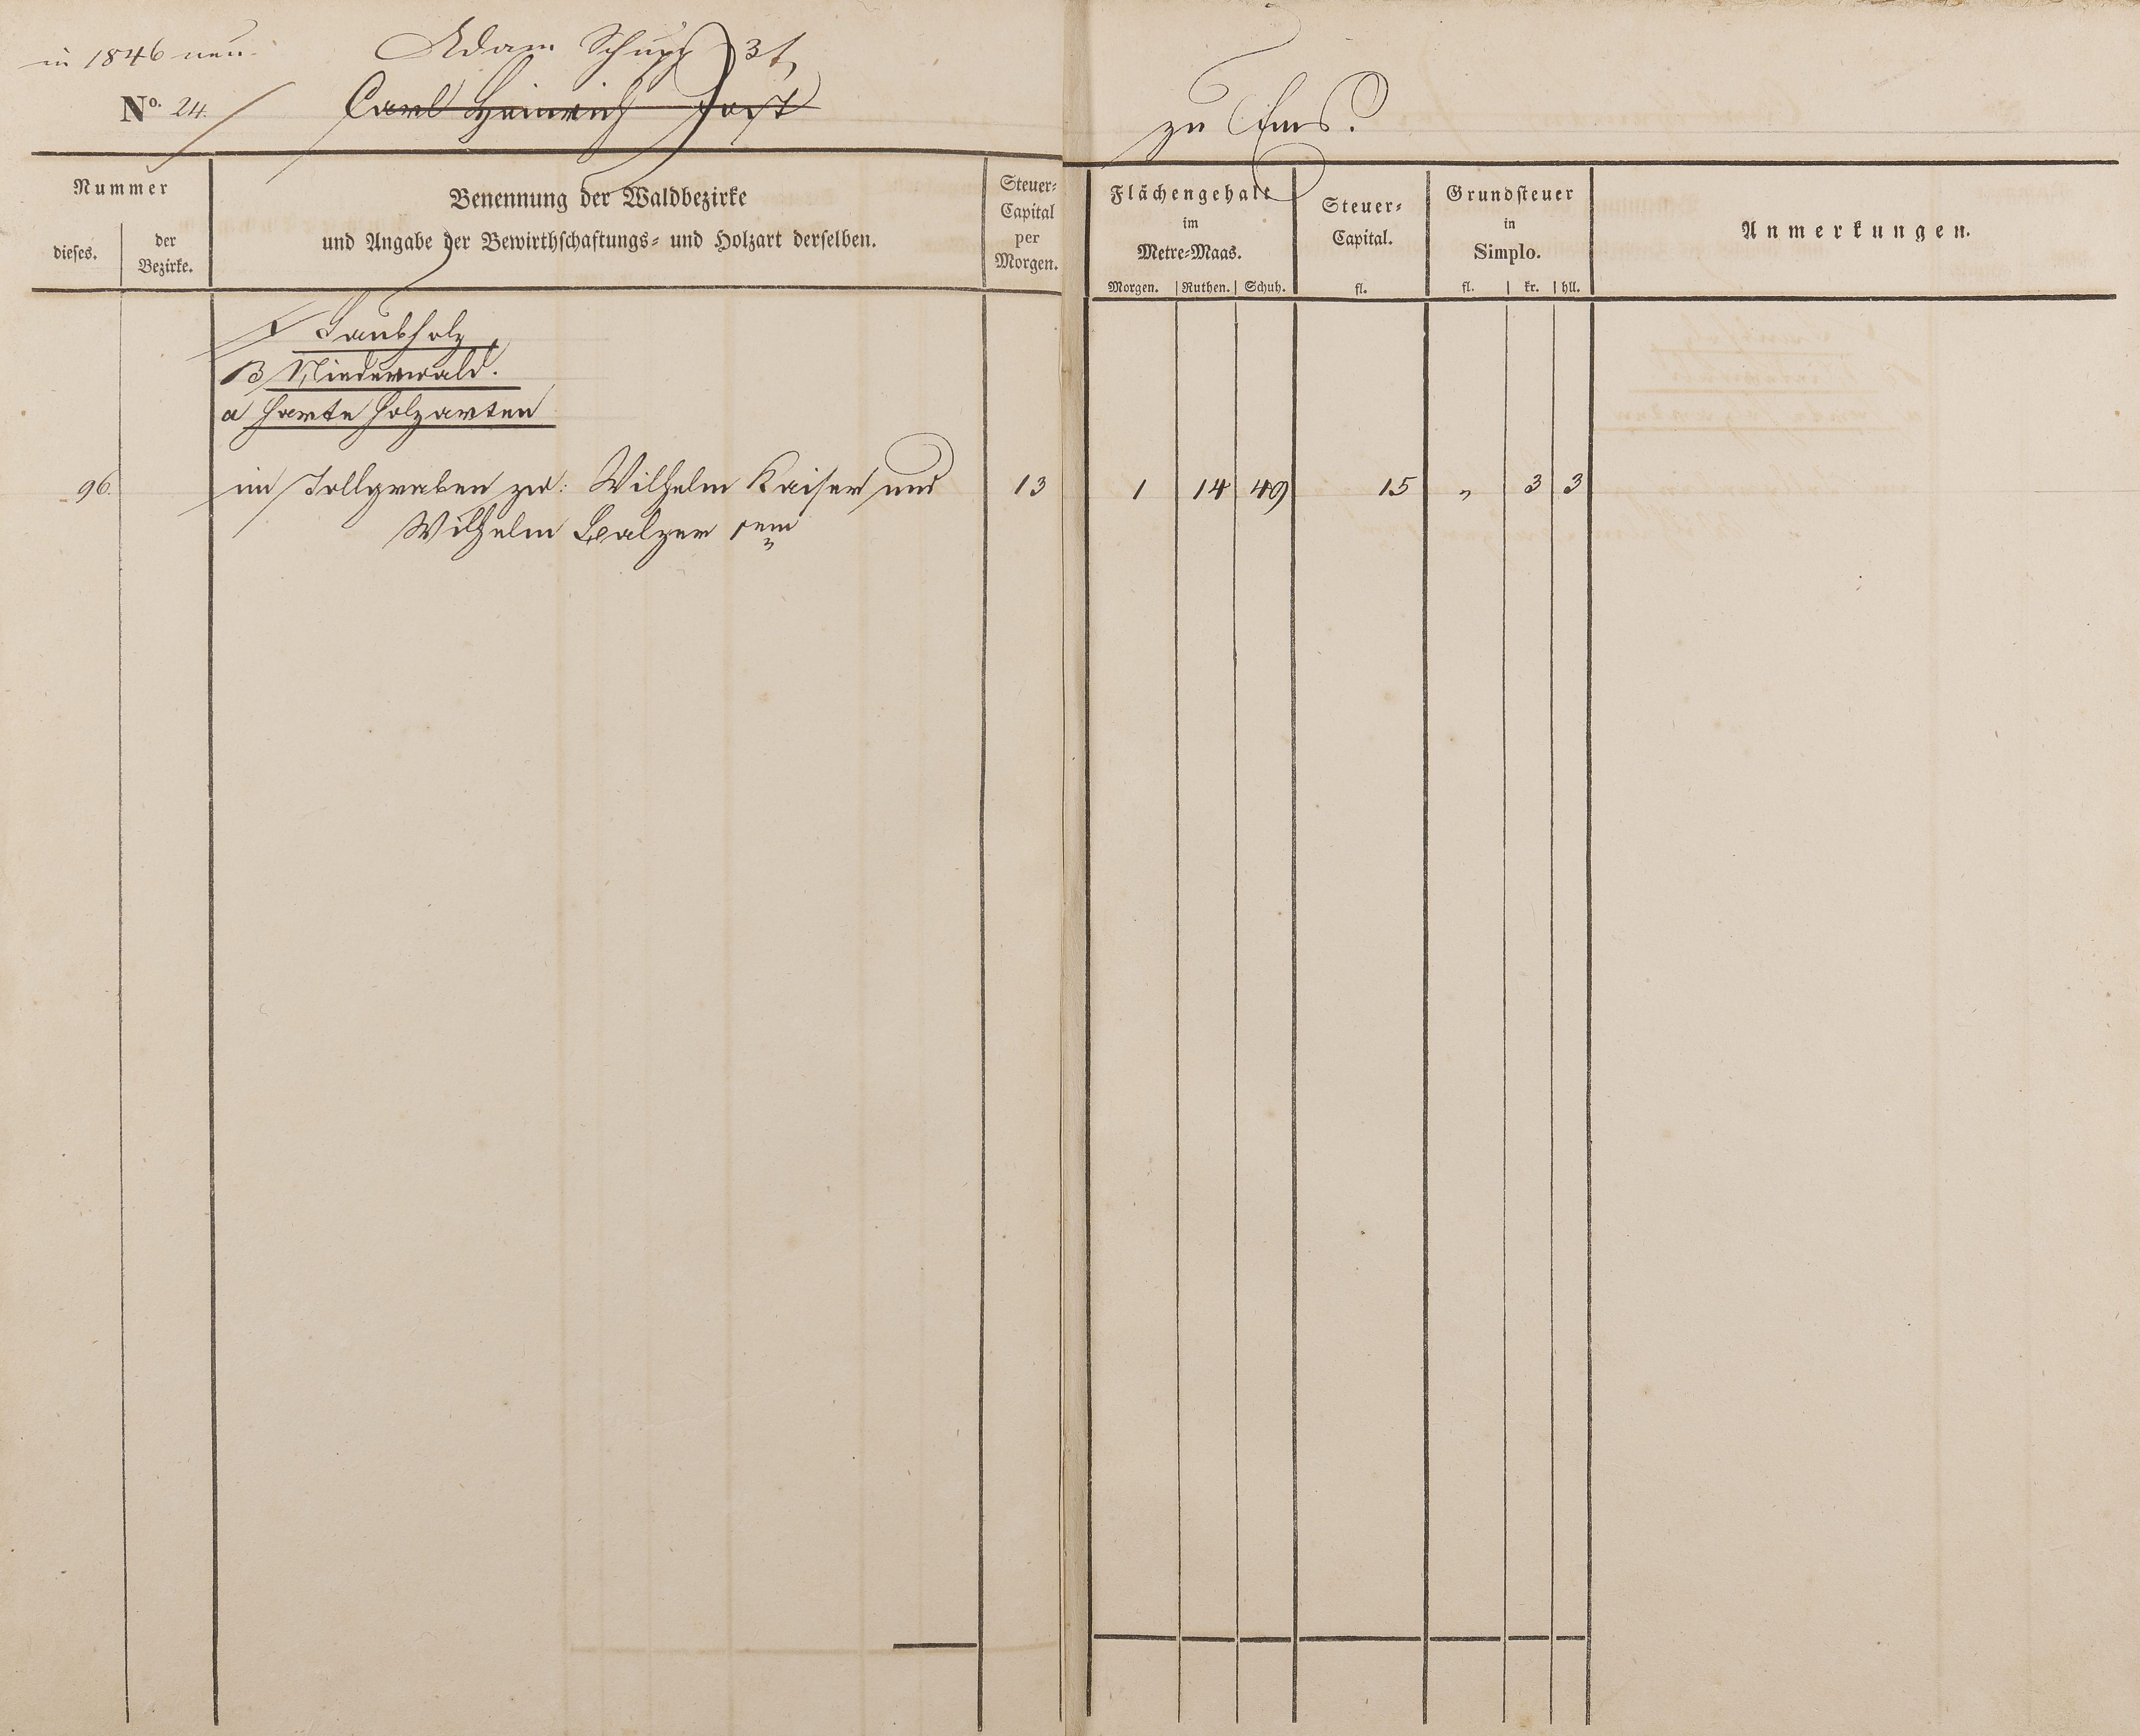 in 1846 neu.
Adam Schupp 3t,
No. 24.
Carl Heinrich Jost
zu Ems.
Nummer
dieses.
der
Bezirke.
Benennung der Waldbezirke
und Angabe der Bewirthschaftungs- und Holzart derselben.
Steuer-
Capital
per
Morgen.
Flächengehalt
im
Metre-Maas.
Morgen. Ruthen. Schuh.
Steuer-
Capital.
fl.
Grundsteuer
in
Simplo.
fl. kr. hll.
Anmerkungen.
Laubholz
B Niederwald.
a harte Holzarten
96. im Tollgraben zw: Wilhelm Kaiser und 13 1 14 49 15 „ 3 3
Wilhelm Balzer sem